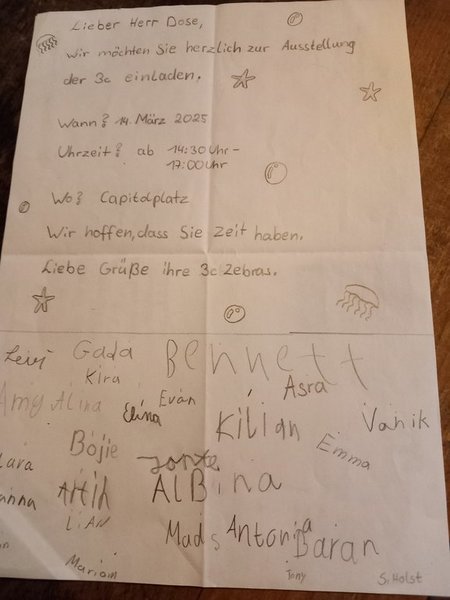 Lieber Herr Dose,
wir möchten Sie herzlich zur Ausstellung
der 3c einladen.
Wann? 14. März 2025
Uhrzeit? ab 14:30 Uhr-
17:00 Uhr
Wo? Capitolplatz
Wir hoffen, dass Sie Zeit haben.
Liebe Grüße ihre 3c Zebras.
Levi Gada Bennett
Kira Asra
Amy Alina Elina Evan
Kilian Vanik
Bojie Jonte Emma
Lara
Artin Albina
Lian
Mads Antonia Baran
Mariam Tony S. Holst